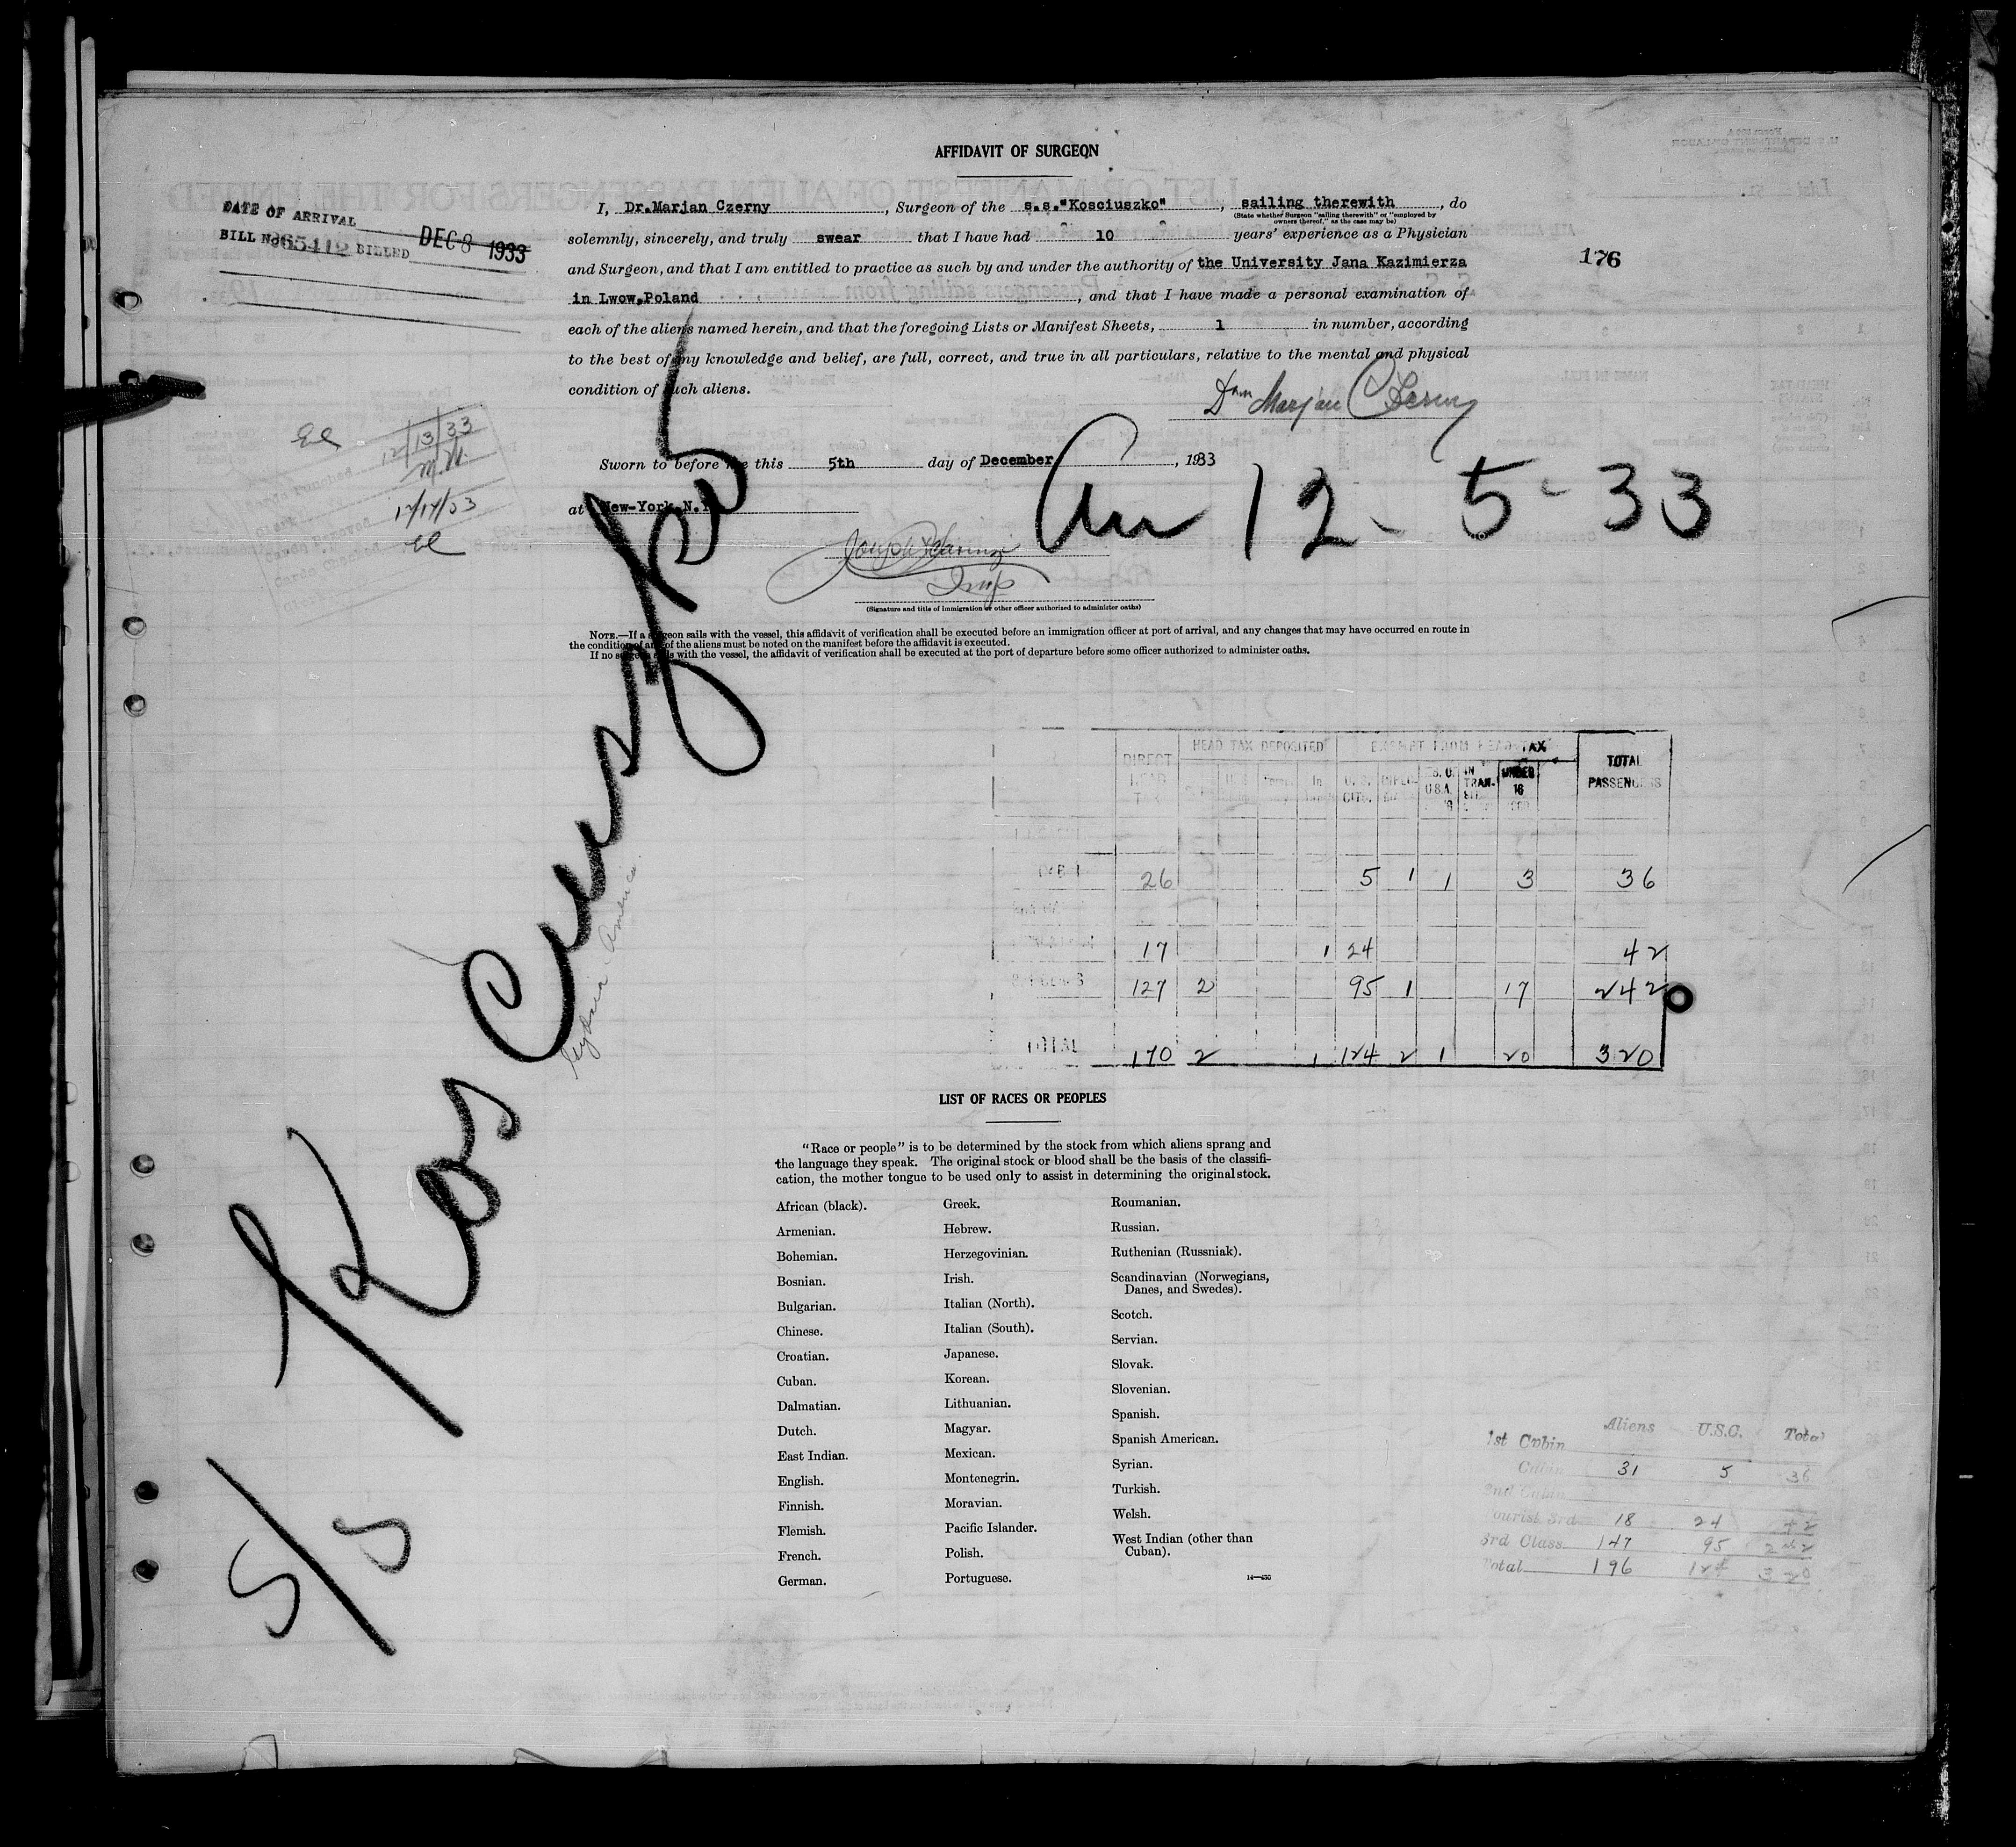 AFFIDAVIT OF SURGEON
I, Dr.Marjan Czerny, Surgeon of the s.s."Kosciuszko", sailing therewith, do
(State whether Surgeon "sailing therewith" or "employed by
owners thereof," as the case may be)
solemnly, sincerely, and truly swear that I have had 10 years' experience as a Physician
and Surgeon, and that I am entitled to practice as such by and under the authority of the University Jana Kazimierza
in Lwow,Poland, and that I have made a personal examination of
each of the aliens named herein, and that the foregoing Lists or Manifest Sheets, 1 in number, according
to the best of my knowledge and belief, are full, correct, and true in all particulars, relative to the mental and physical
condition of such aliens.
DATE OF ARRIVAL
BILL No 65412 BILLED DEC 8 1933
176
Marjan Czerny
Sworn to before me this 5th day of December, 1933
at New-York N.Y.
Insp
(Signature and title of Immigration or other officer authorized to administer oaths)
Arr 12-5-33
12/13/33
12/14/33
NOTE.—If a surgeon sails with the vessel, this affidavit of verification shall be executed before an immigration officer at port of arrival, and any changes that may have occurred en route in
the condition of any of the aliens must be noted on the manifest before the affidavit is executed.
If no surgeon sails with the vessel, the affidavit of verification shall be executed at the port of departure before some officer authorized to administer oaths.
S/S Kosciuszko
Gdynia America
DIRECT HEAD TAX HEAD TAX DEPOSITED EXEMPT FROM HEAD TAX TOTAL PASSENGERS
U.S. CITZ. U.S.A. IN TRAN- UNDER 16
26 5 1 1 3 36
17 1 24 42
127 2 95 1 17 242
TOTAL 170 2 1 124 2 1 20 320
LIST OF RACES OR PEOPLES
"Race or people" is to be determined by the stock from which aliens sprang and
the language they speak. The original stock or blood shall be the basis of the classifi-
cation, the mother tongue to be used only to assist in determining the original stock.
African (black).
Armenian.
Bohemian.
Bosnian.
Bulgarian.
Chinese.
Croatian.
Cuban.
Dalmatian.
Dutch.
East Indian.
English.
Finnish.
Flemish.
French.
German.
Greek.
Hebrew.
Herzegovinian.
Irish.
Italian (North).
Italian (South).
Japanese.
Korean.
Lithuanian.
Magyar.
Mexican.
Montenegrin.
Moravian.
Pacific Islander.
Polish.
Portuguese.
Roumanian.
Russian.
Ruthenian (Russniak).
Scandinavian (Norwegians,
Danes, and Swedes).
Scotch.
Servian.
Slovak.
Slovenian.
Spanish.
Spanish American.
Syrian.
Turkish.
Welsh.
West Indian (other than
Cuban).
Aliens U.S.C. Total
1st Cabin
Cabin 31 5 36
2nd Cabin
Tourist 3rd 18 24 42
3rd Class 147 95 242
Total 196 124 320